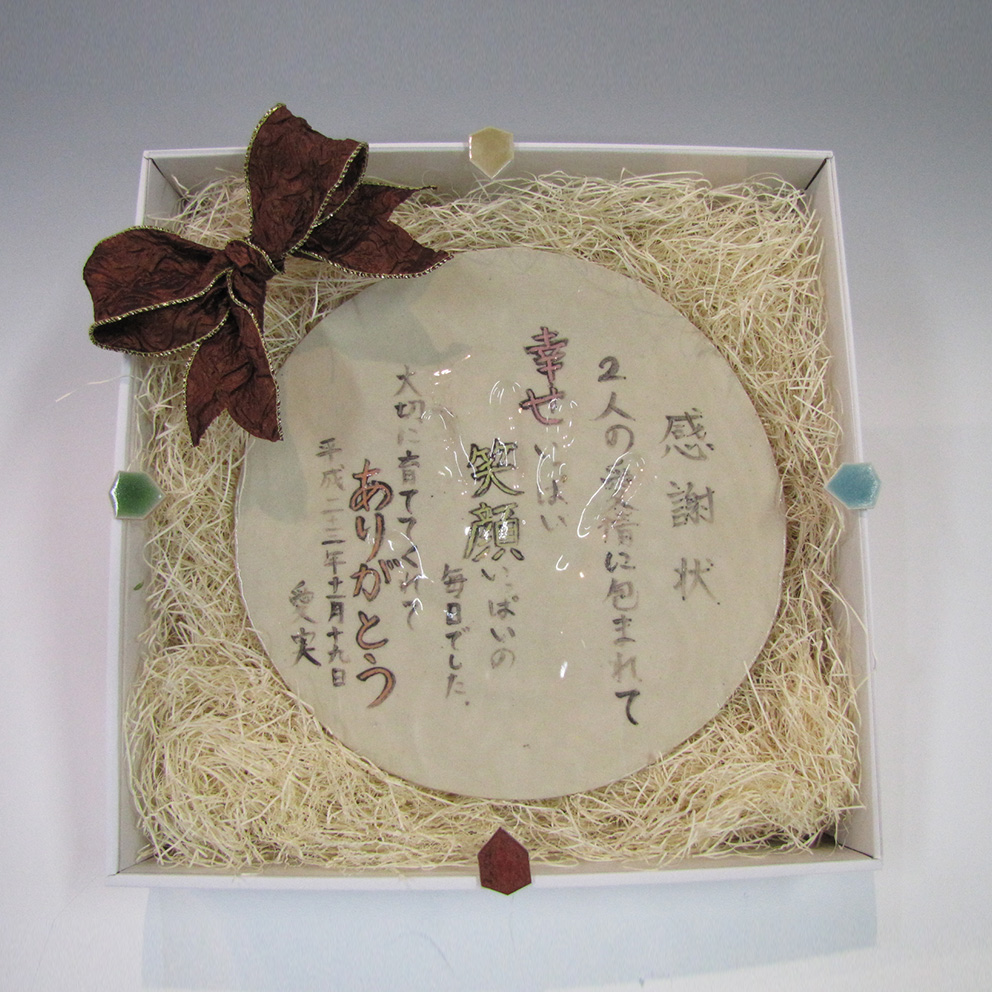 感謝状
2人の愛情に包まれて
幸せいっぱい
笑顔いっぱいの
毎日でした。
大切に育ててくれて
ありがとう
平成二十二年十一月十九日
愛実